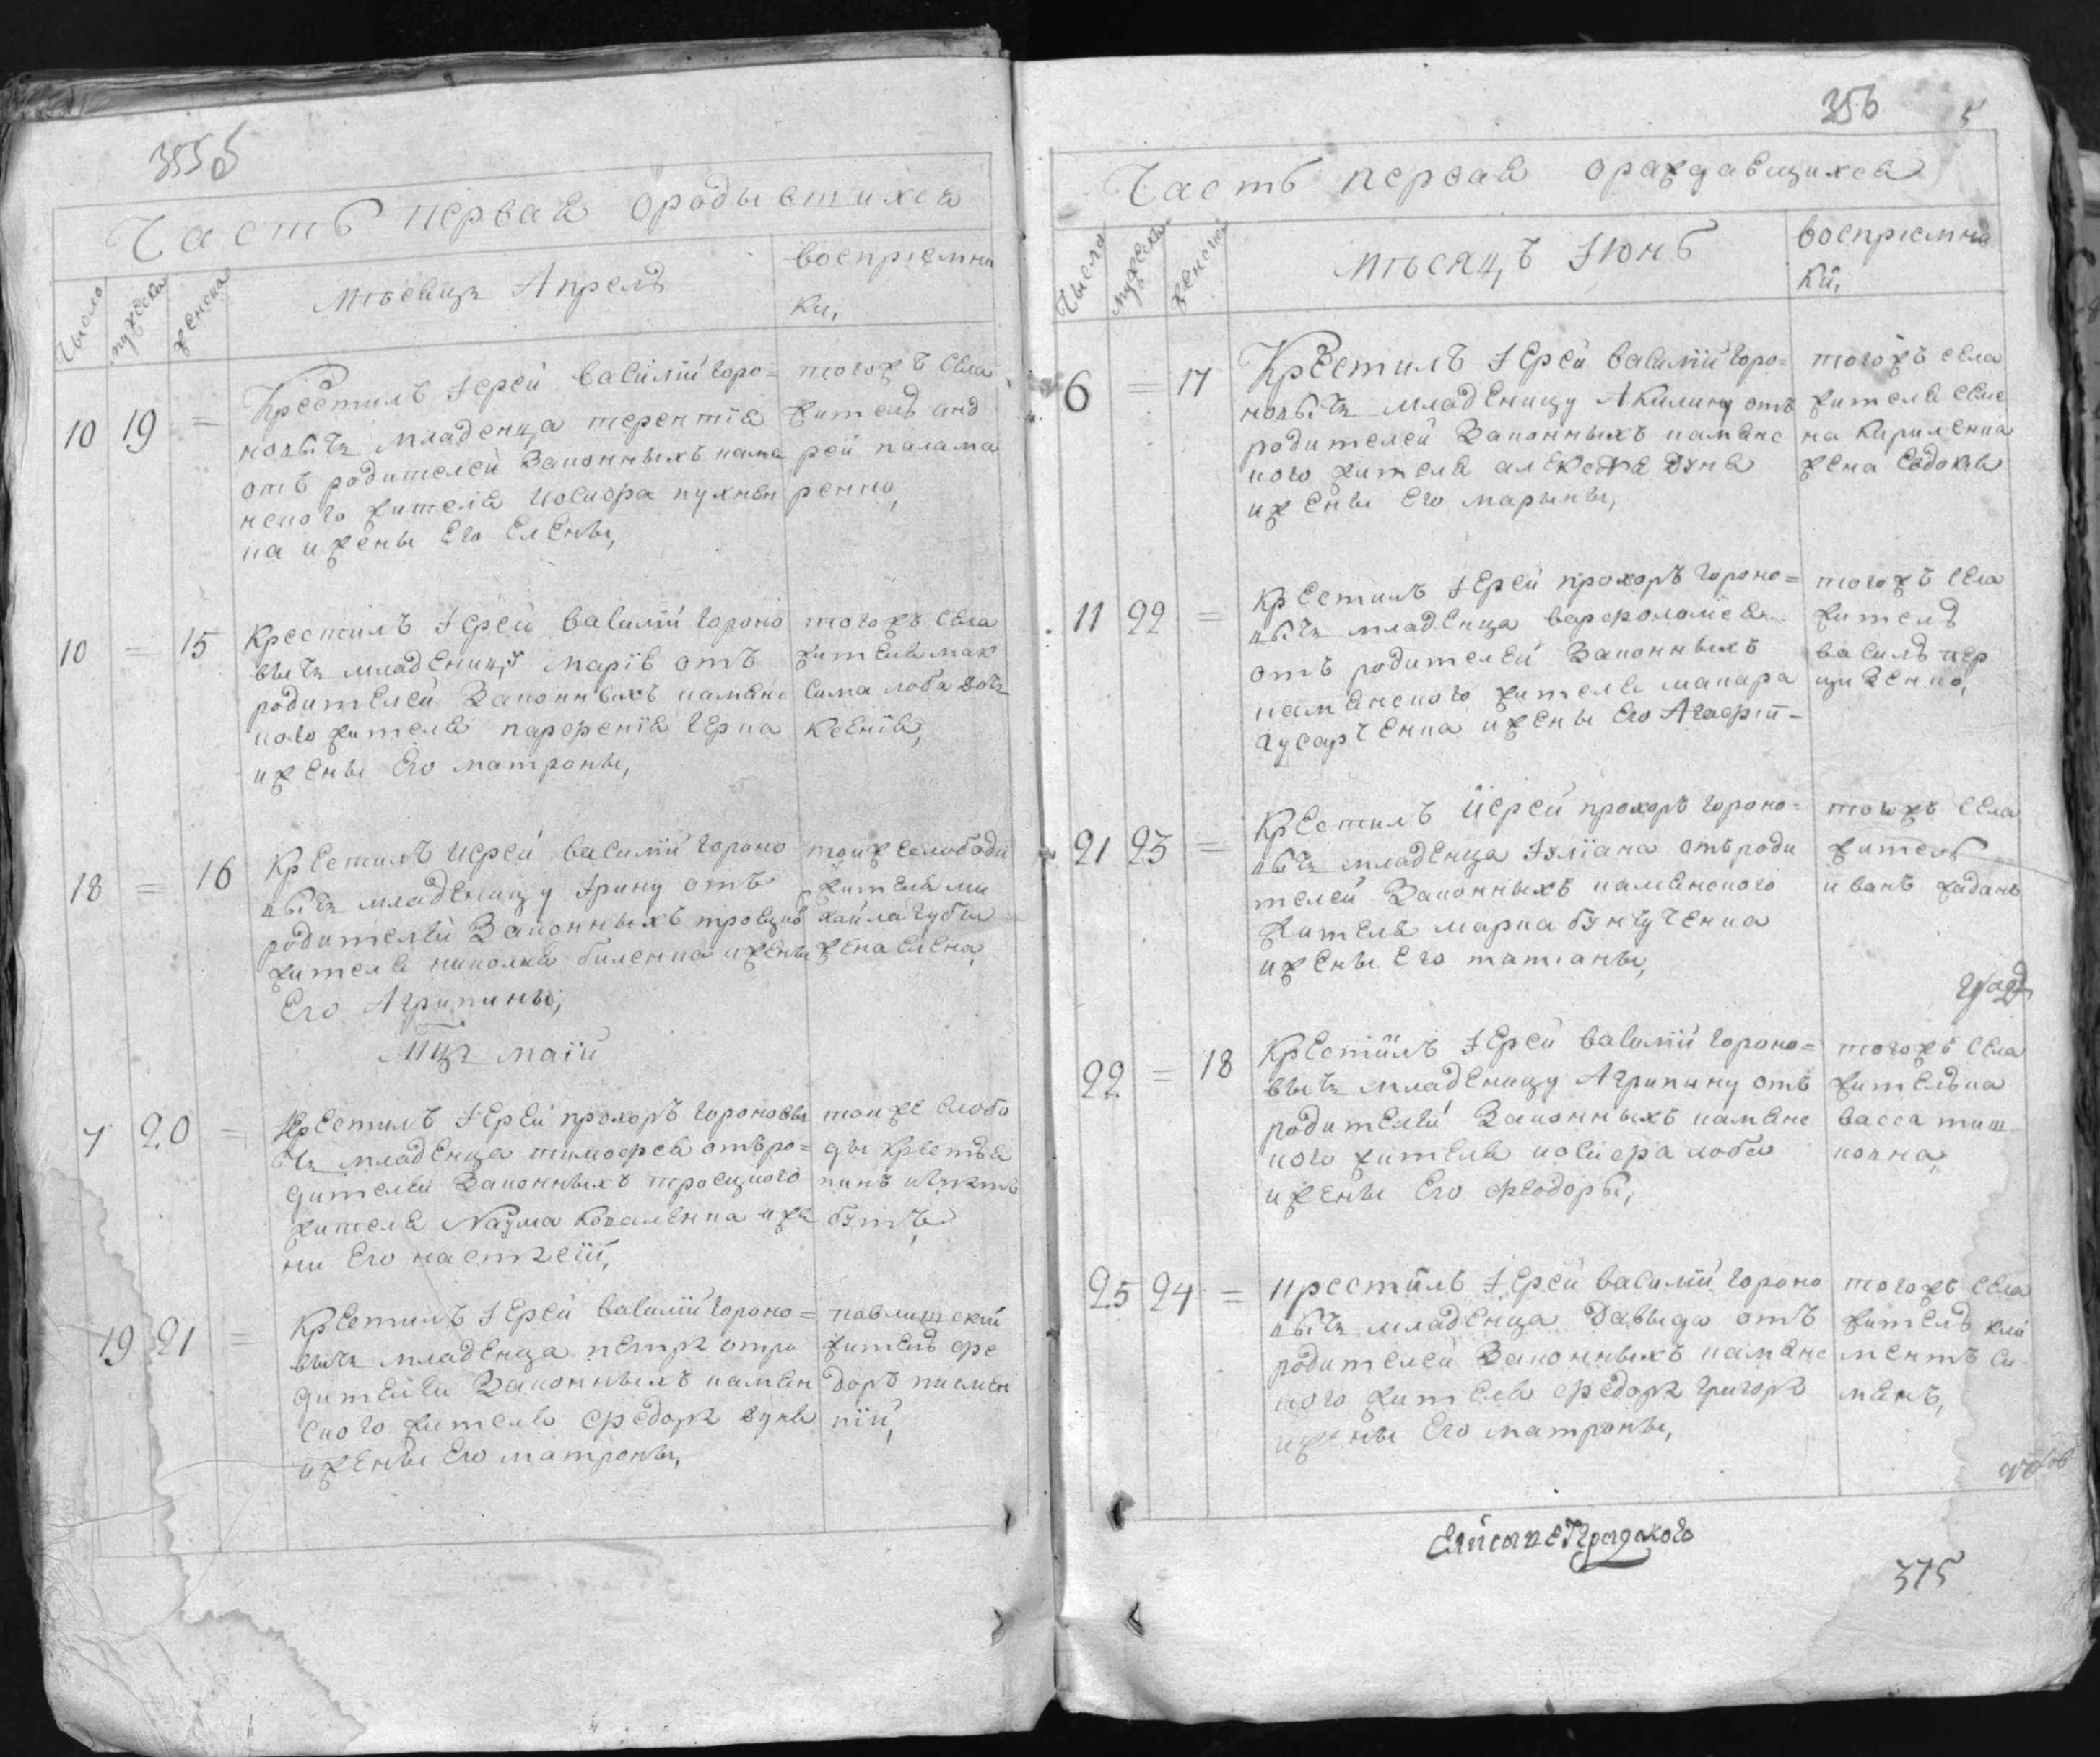 355об
Часть первая ородывшихся
число
мужеска
женска
мѣсяцъ Апрель
воспріемни
ки,
10 19 = Крестилъ Іерей Василій Горо=
новичъ младенца терентія
отъ родителей Законныхъ каме
нского жителя иосифа пухнен
ка ижены Его Елены,
тогожъ села
житель анд
рей палама
ренко,
10 = 15 Крестилъ Іерей Василій Гороно
вичъ младеницу марію отъ
родителей Законныхъ каменс
кого жителя парфенія Герка
ижены Его матроны,
тогожъ села
жителя мак
сима лоба дочь
Ксенія,
18 = 16 Крестилъ Иерей Василій Гороно
вичъ младеницу Ірину отъ
родителей Законныхъ троецко
жителя николая биленка ижены
Его Агрипины,
тоиж слободи
жителя ми
хайла губы
жена елена,
Мцъ маій
7 20 = Крестилъ Іерей прохоръ Гороновы
чъ младенца тимофея отъро=
дителей Законныхъ троецкого
жителя Наума Коваленка иже
ни Его настасіи,
тоиже слобо
ды крестья
нинъ
бутъ
19 21 = Крестилъ Іерей Василій Гороно=
вычъ младенца петра отро
дителей Законныхъ камен
ского жителя федора зуня
ижены Его матроны,
павлишский
житель фе
доръ писмен
ній,
356
5
Часть первая ораждающихся
число
мужеска
женска
мѣсяцъ Іюнь
воспріемни
ки,
6 = 17 Крестилъ Іерей Василій Горо=
новичъ младеницу Акилину отъ
родителей Законныхъ каменс
кого жителя алексея зуня
ижены Его марыны,
тогожъ села
жителя семе
на Кириленка
жена Евдокия
11 22 = Крестилъ Іерей прохоръ Гороно=
вичъ младенца варфоломея
отъ родителей Законныхъ
каменского жителя макара
Гусарченка ижены Его Агафіи
тогожъ села
житель
василь пер
циженко,
21 23 = Крестилъ Іерей прохоръ Гороно=
вичъ младенца Іуліана отъроди
телей Законныхъ каменского
жителя марка бунчученка
ижены Его татіаны,
тогожъ села
житель
иванъ жаданъ
град
22 = 18 Крестилъ Іерей Василій Гороно=
вычъ младеницу Агрипину отъ
родителей Законныхъ каменс
кого жителя иосифа лобы
ижены Его феодоры,
тогожъ села
жителька
васса тиш
ковна,
25 24 = Крестилъ Іерей Василій Гороно
вичъ младенца Давыда отъ
родителей Законныхъ каменс
кого жителя федора григора
ижены Его матроны,
тогожъ села
житель кли
ментъ си
менъ,
Елисаветградского
375